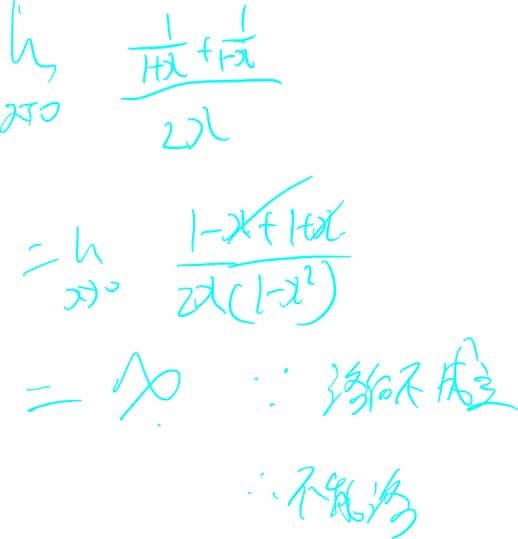 lim x→0 (1/(1+x) + 1/(1-x)) / 2x
= lim x→0 (1-x+1+x) / 2x(1-x²)
= ∞ ∵ 洛后不成立
∴ 不能洛